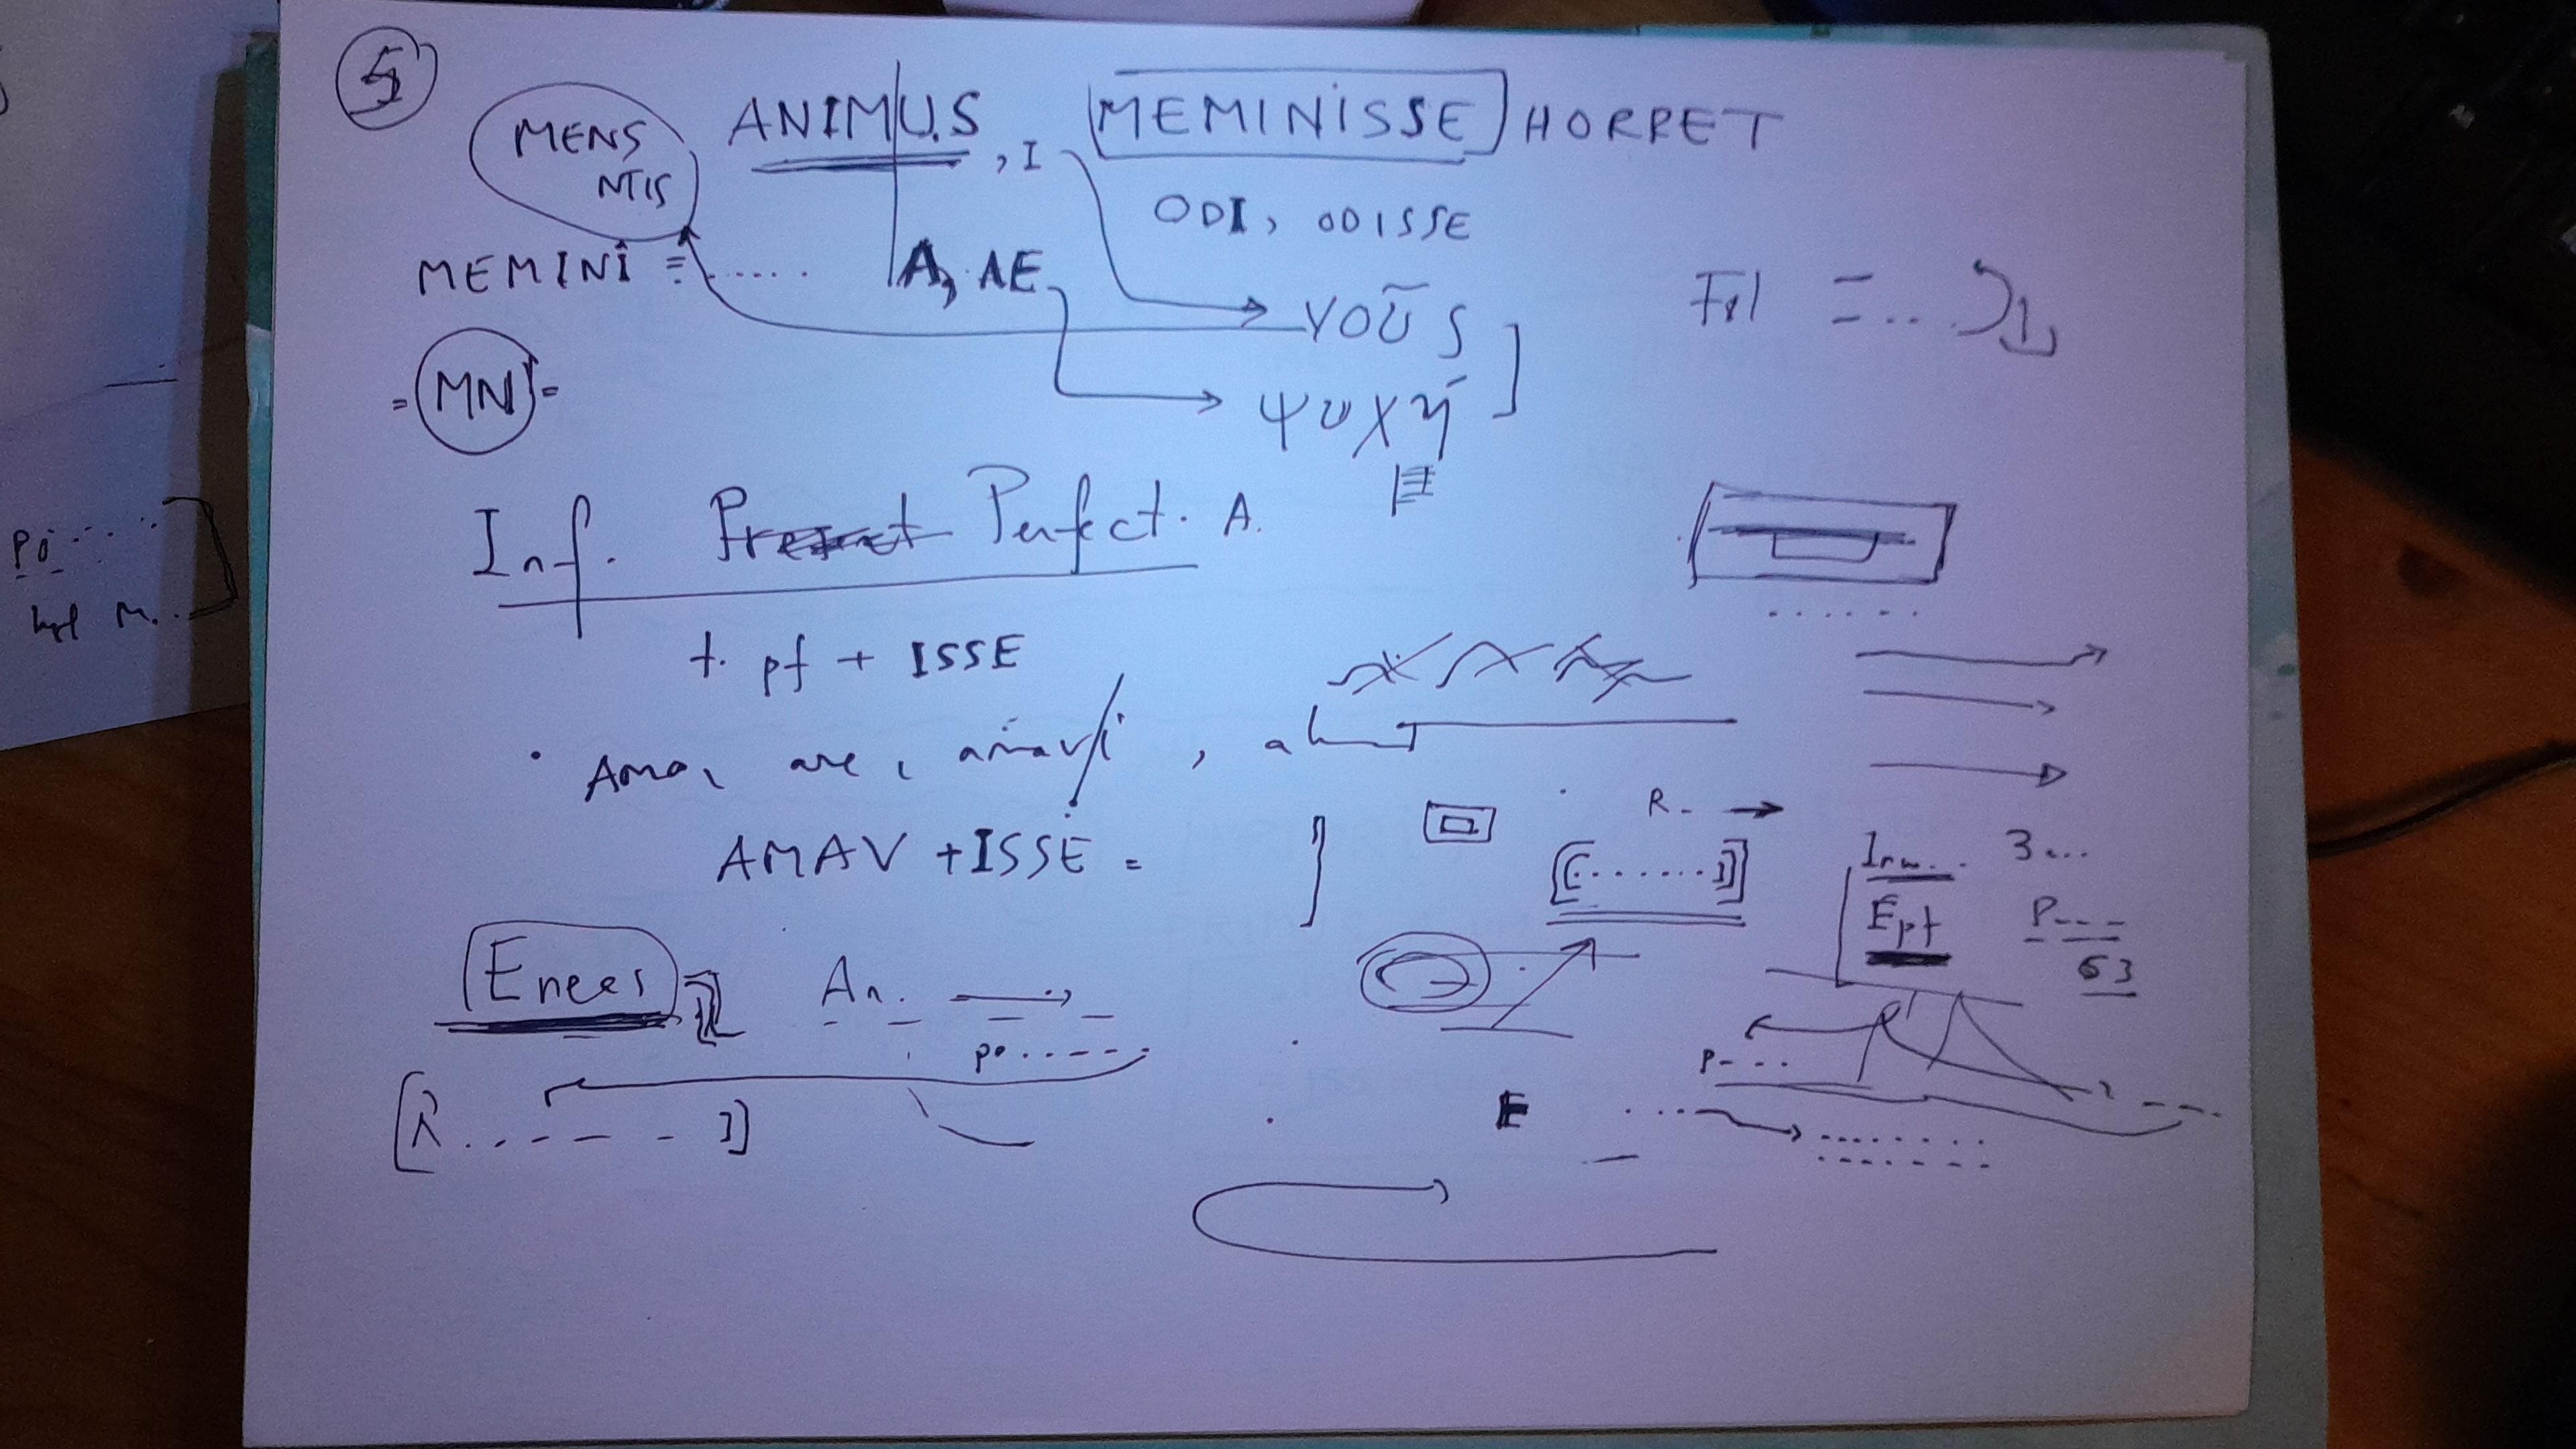 5
MENS ANIMUS, I MEMINISSE HORRET
NTIS
ODI, ODISSE
MEMINI = ...... A, AE
νοῦς
= MN =
ψυχή
Inf. Perfect. A.
t. pf + ISSE
Amo, are, amavi,
AMAV + ISSE =
R.
3...
Ept P----
63
Eneas An.
po.....
P-...
[R.........]
E
Po.....